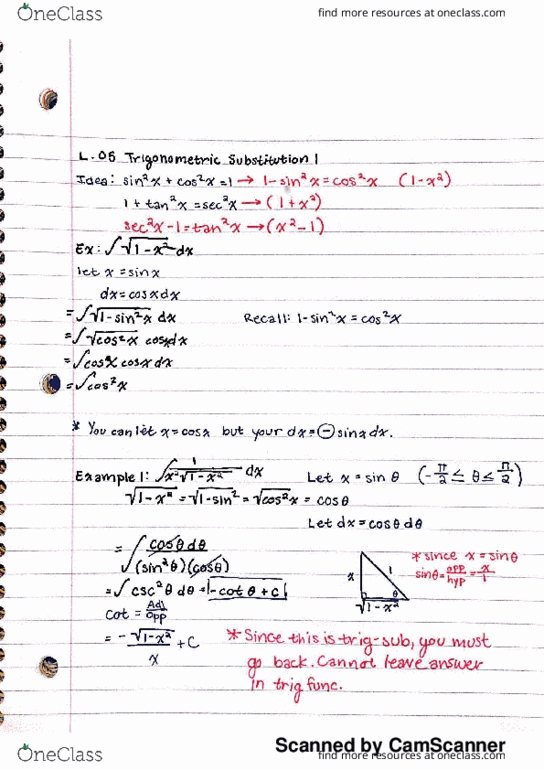 OneClass
find more resources at oneclass.com
L.05 Trigonometric Substitution 1
Idea: sin²x + cos²x = 1 → 1 - sin²x = cos²x (1-x²)
1 + tan²x = sec²x → (1+x²)
sec²x - 1 = tan²x → (x²-1)
Ex: ∫√1-x² dx
let x = sin x
dx = cos x dx
= ∫√1-sin²x dx Recall: 1-sin²x = cos²x
= ∫√cos²x cosxdx
= ∫cosx cosx dx
= ∫cos²x
* You can let x = cosx but your dx = ⊖ sinx dx.
Example 1: ∫ 1/(x²√1-x²) dx Let x = sin θ (-π/2 ≤ θ ≤ π/2)
√1-x² = √1-sin² = √cos²x = cosθ
Let dx = cosθ dθ
= ∫ cosθ dθ / (sin²θ)(cosθ)
= ∫csc²θ dθ = -cot θ + C
cot = Adj/Opp
= -√1-x²/x + C
x 1 θ √1-x²
* since x = sinθ
sinθ = opp/hyp = x/1
* Since this is trig-sub, you must
go back. Cannot leave answer
in trig func.
Scanned by CamScanner
OneClass
find more resources at oneclass.com